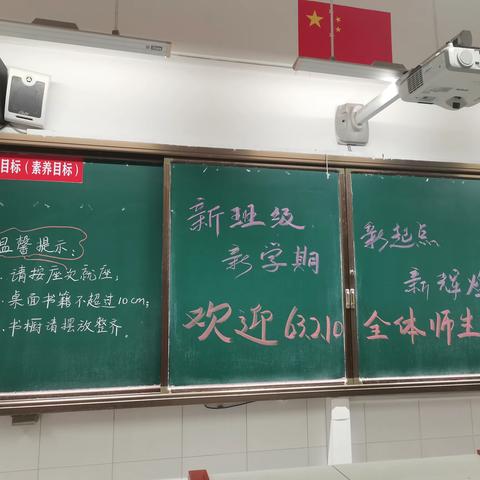 目标（素养目标）
温馨提示：
请按座次就座；
桌面书籍不超过10cm；
书橱请摆放整齐。
新班级
新学期
欢迎63210
新起点
新辉煌
全体师生